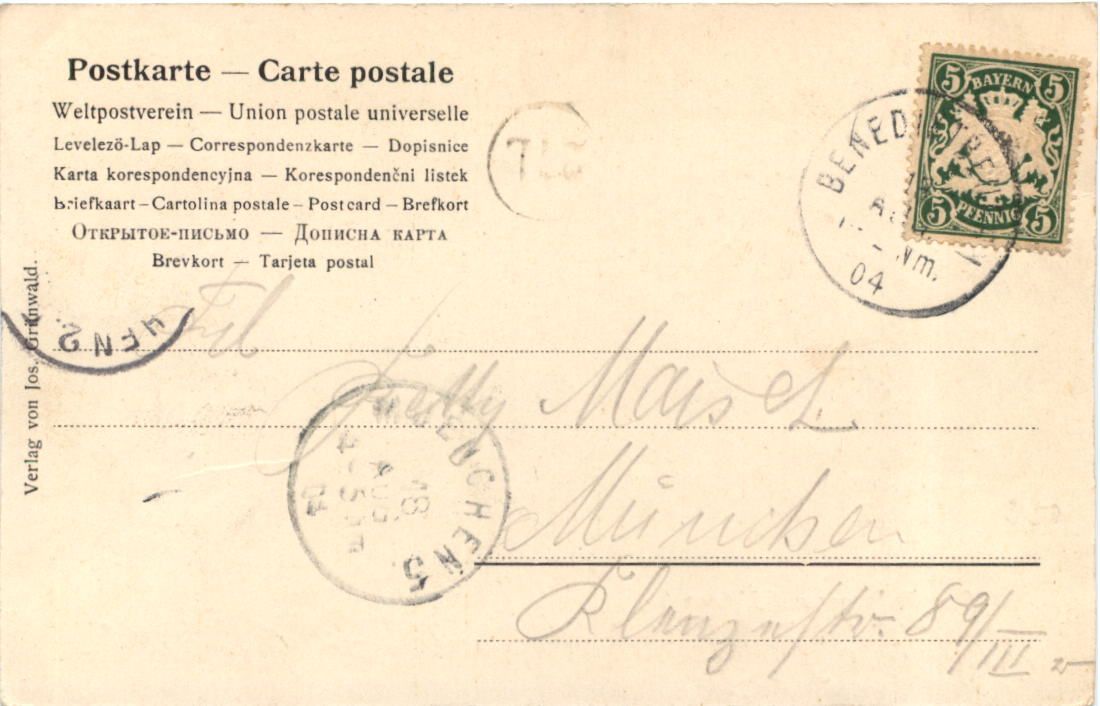 Postkarte — Carte postale
Weltpostverein — Union postale universelle
Levelezö-Lap — Correspondenzkarte — Dopisnice
Karta korespondencyjna — Korespondenčni listek
Briefkaart – Cartolina postale – Post card – Brefkort
Открытое-письмо — Дописна карта
Brevkort — Tarjeta postal
5 BAYERN 5
5 PFENNIG 5
Nm.
04
Verlag von Jos. Grünwald.
Frl
Maisel
München
Klenzestr. 89/III
MUENCHEN 5.
18
AUG